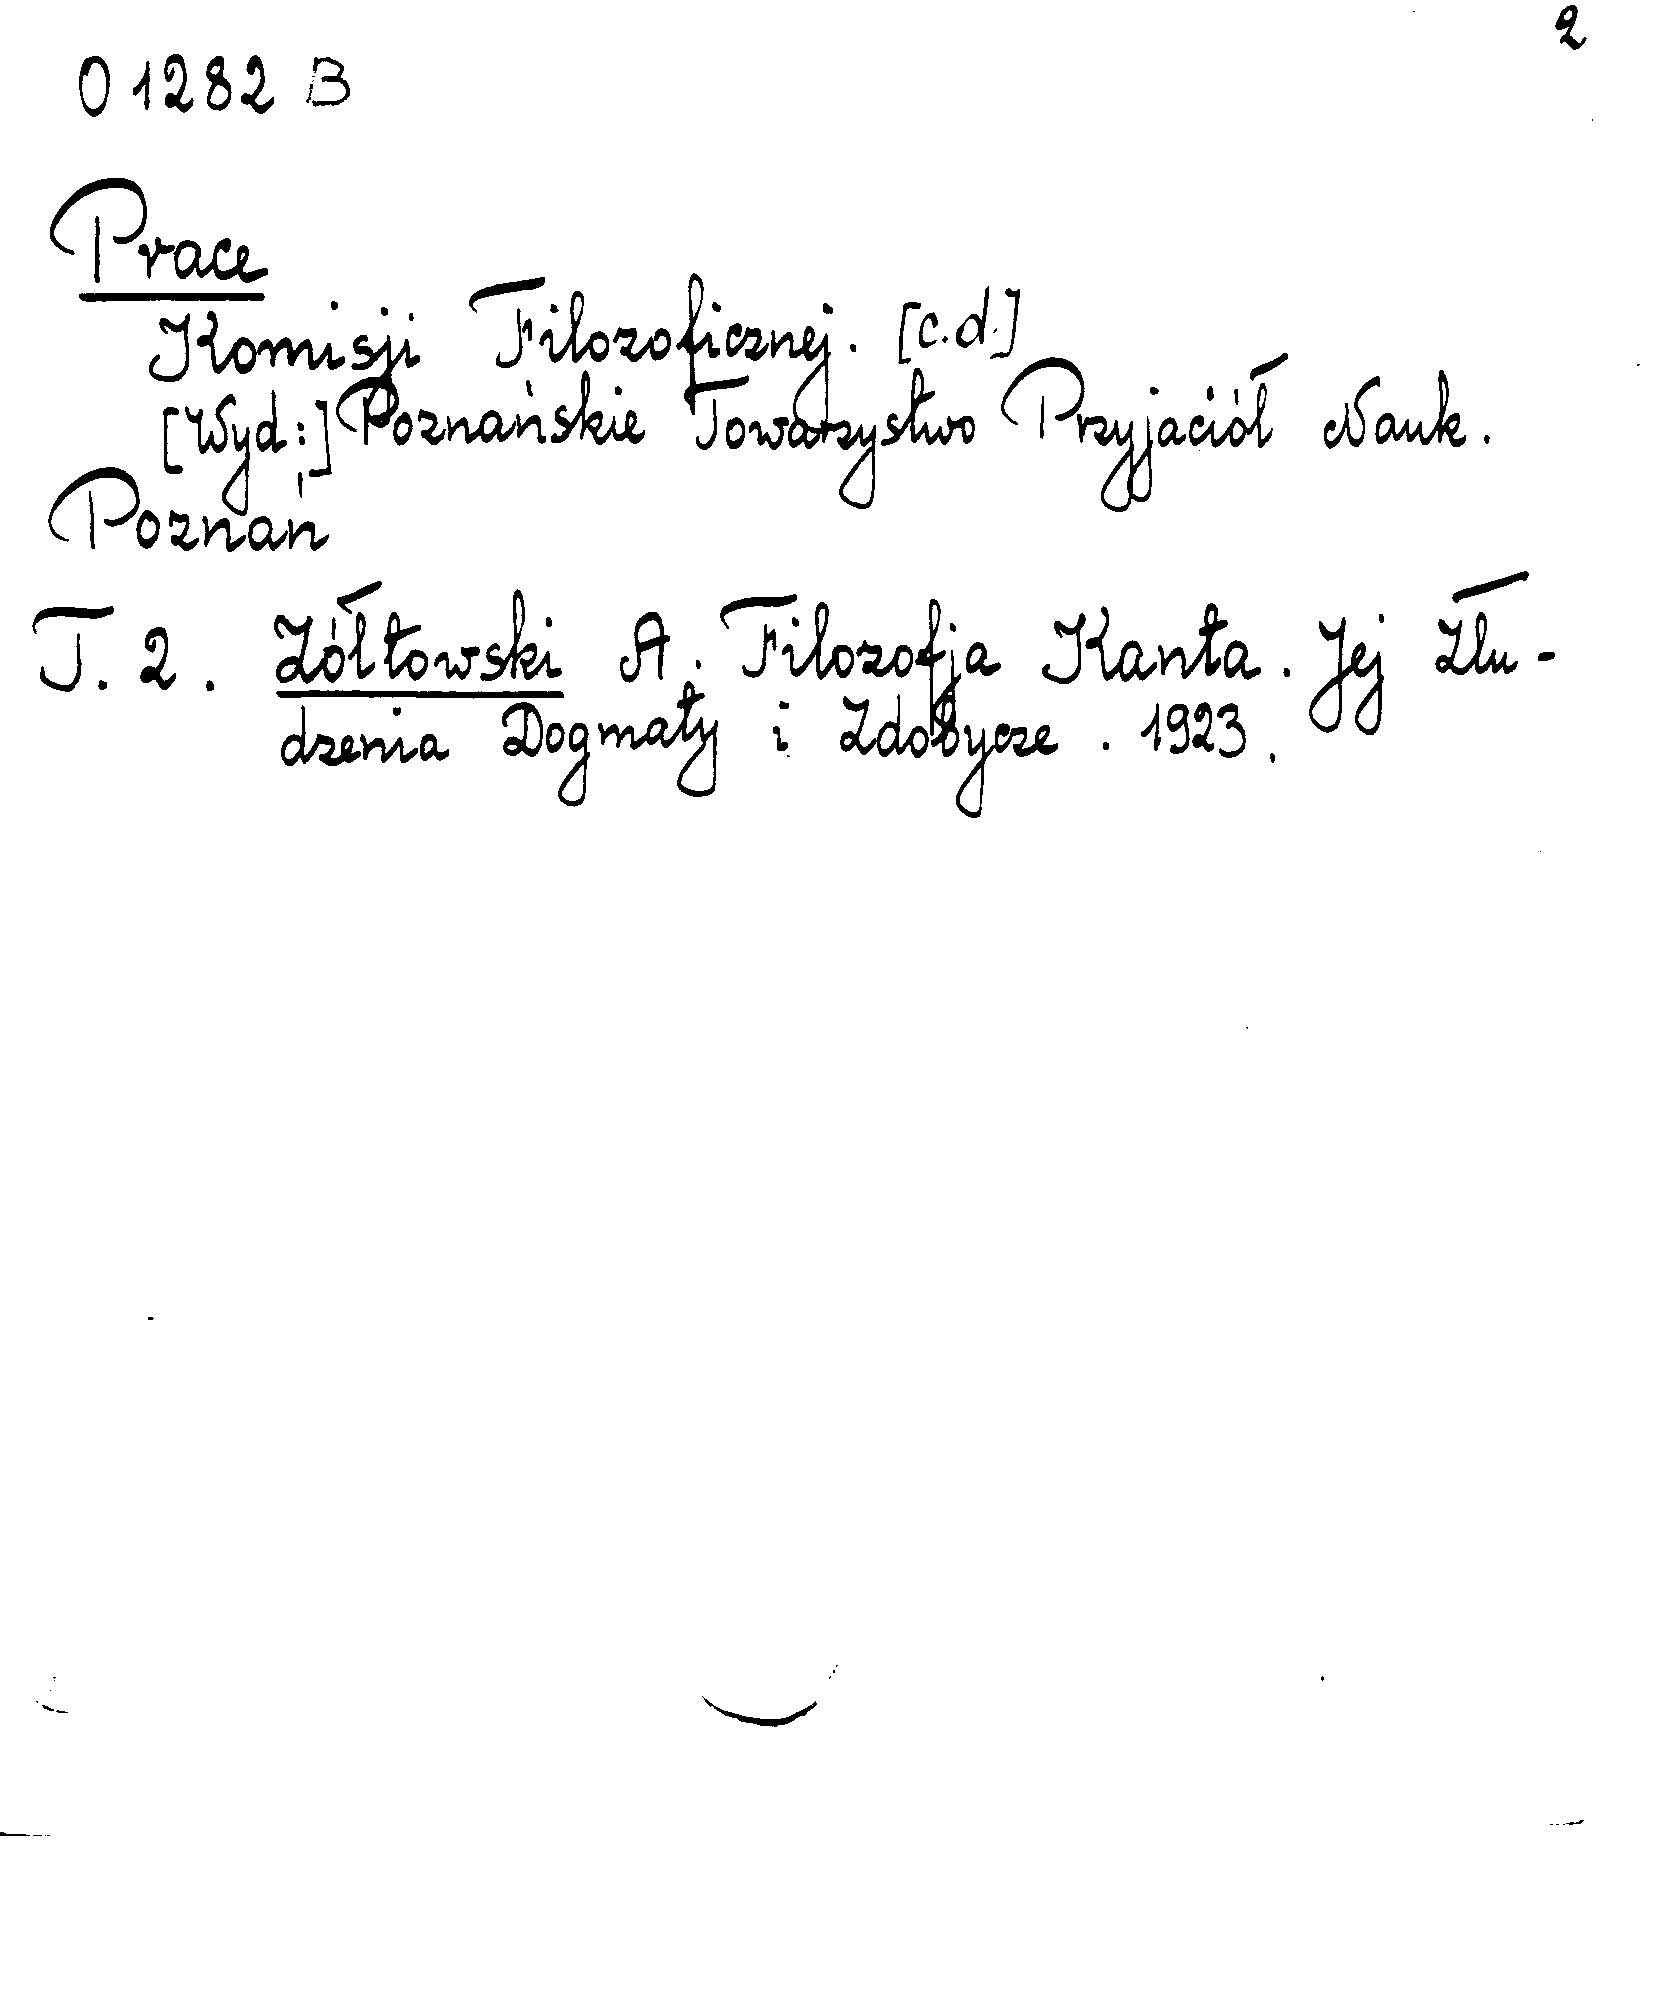 2
O 1282 B
Prace
Komisji Filozoficznej. [c.d.]
[Wyd:] Poznańskie Towarzystwo Przyjaciół Nauk.
Poznań
T. 2. Żółtowski A. Filozofja Kanta. Jej Złu-
dzenia Dogmaty i Zdobycze. 1923.